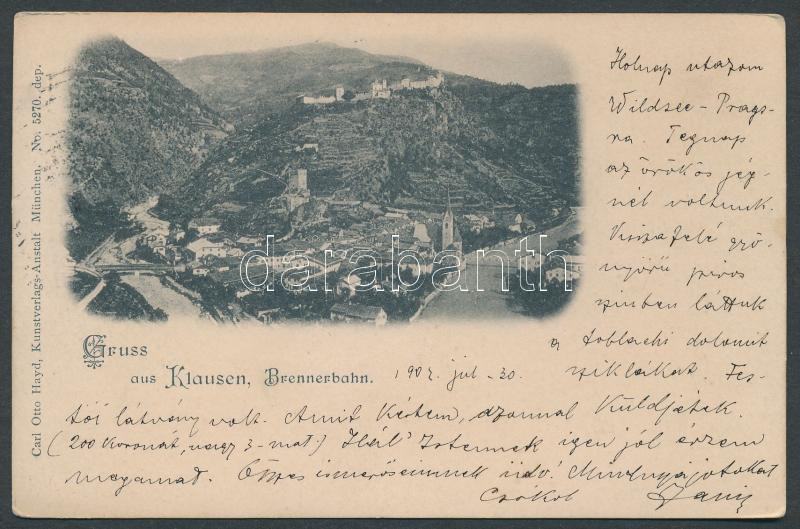 Carl Otto Hayd, Kunstverlags-Anstalt München, No. 5270. dep.
Holnap utazom
Wildsee-Prags-
ra. Tegnap
az örökös jég-
nél voltunk.
Visszafelé gyö-
nyörű piros
szinben láttuk
a toblachi dolomit
sziklákat. Fes-
tői látvány volt. Amit kértem, azonnal küldjétek.
(200 koronát, vagy 3-mat.) Hál' Istennek igen jól érzem
magamat. Összes ismerőseimnek üdv! Mindnyájatokat
Csókol
Gruss
aus Klausen, Brennerbahn.
190 jul - 30.
darabanth